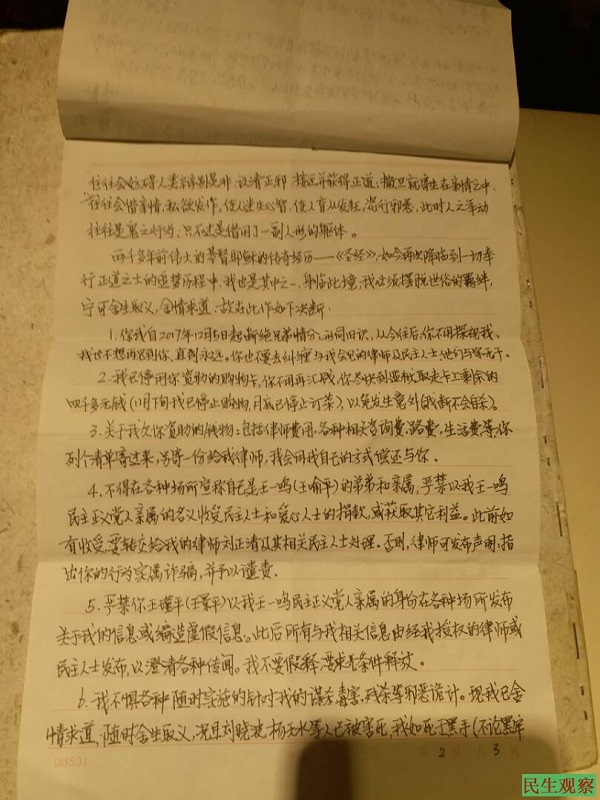 往往会妨碍人类识别是非,认清正邪,接近并获得正道,撒旦就寄生在亲情之中
往往会借亲情,私欲发作,使人迷失心智,使人盲从发狂,恣行邪恶,此时人之举动
往往是鬼之行为,只不过是借用了一副人形的躯体。
两千多年前伟大的基督耶稣的传奇经历——《圣经》,如今再次降临到一切奉
行正道之士的追梦历程中,我也是其中之一,身临此境,我必须摆脱世俗的羁绊,
宁可舍生取义,舍情求道,故在此作如下决断:
1.你我自2017年12月5日起断绝兄弟情分,形同旧识,从今往后,你不用探视我,
我也不想再见到你,直到永远。你也不要去纠缠与我会见的律师及民主人士他们与你无干。
2.我已停用你资助的购物卡,你不用再汇钱,你尽快到监狱取走卡上剩余的
四千多元钱(11月下旬我已停止购物,月底已停止订菜),以免发生意外(我断不会自杀)。
3.关于我欠你资助的钱物:包括律师费用、各种相关咨询费、路费、生活费等,你
列个清单寄过来,另寄一份给我律师,我会用我自己的方式偿还与你。
4.不得在各种场所宣称自己是王一鸣(王喻平)的弟弟和亲属,严禁以我王一鸣
民主正义党人亲属的名义收受民主人士和爱心人士的捐款,或获取其它利益。此前如
有收受,要转交给我的律师刘正清及其相关民主人士处理。否则,律师可发布声明,指
出你的行为实属诈骗,并予以谴责。
5.严禁你王瑾平(王景平)以我王一鸣民主正义党人亲属的身份在各种场所发布
关于我的信息或编造虚假信息。此后所有与我相关信息由经我授权的律师或
民主人士发布,以澄清各种传闻。我不要假释,要求无条件释放。
6.我不惧各种随时实施的针对我的谋杀、毒害、残杀等邪恶诡计。现我已舍
情求道,随时舍生取义,况且刘晓波、杨天水等人已被害死,我如死于黑手(不论黑牢
第2页 共3页
03531
民生观察